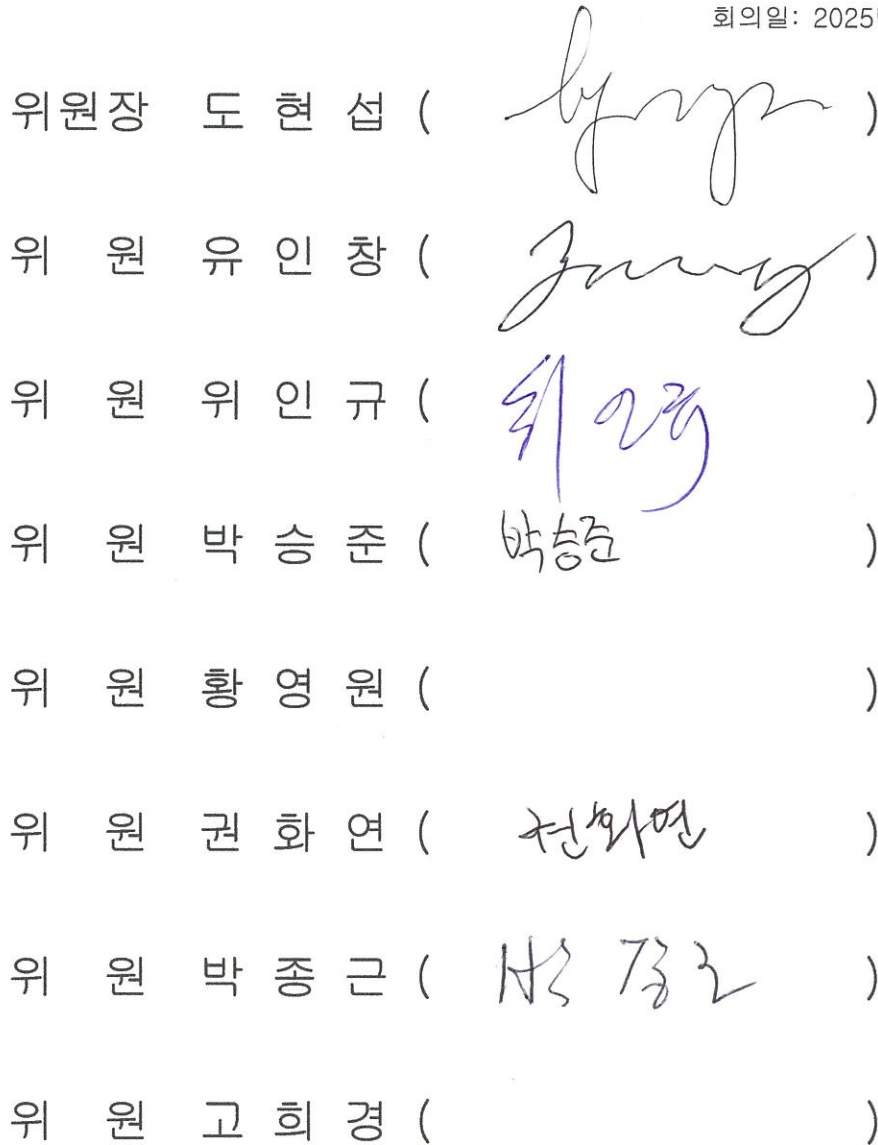 회의일: 2025
위원장 도 현 섭 ( )
위 원 유 인 창 ( )
위 원 위 인 규 ( 위인규 )
위 원 박 승 준 ( 박승준 )
위 원 황 영 원 ( )
위 원 권 화 연 ( 권화연 )
위 원 박 종 근 ( 박종근 )
위 원 고 희 경 ( )